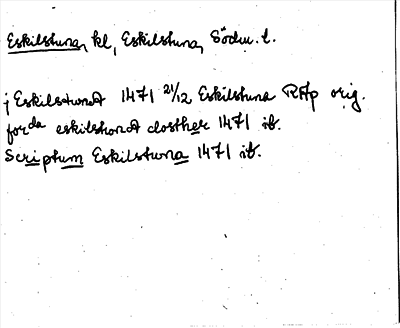 Eskilstuna, kl, Eskilstuna, Södm. l.
j Eskilstuna 1471 21/12 Eskilstuna RAp orig.
forda eskilstuna closther 1471 ib.
Scriptum Eskilstuna 1471 ib.